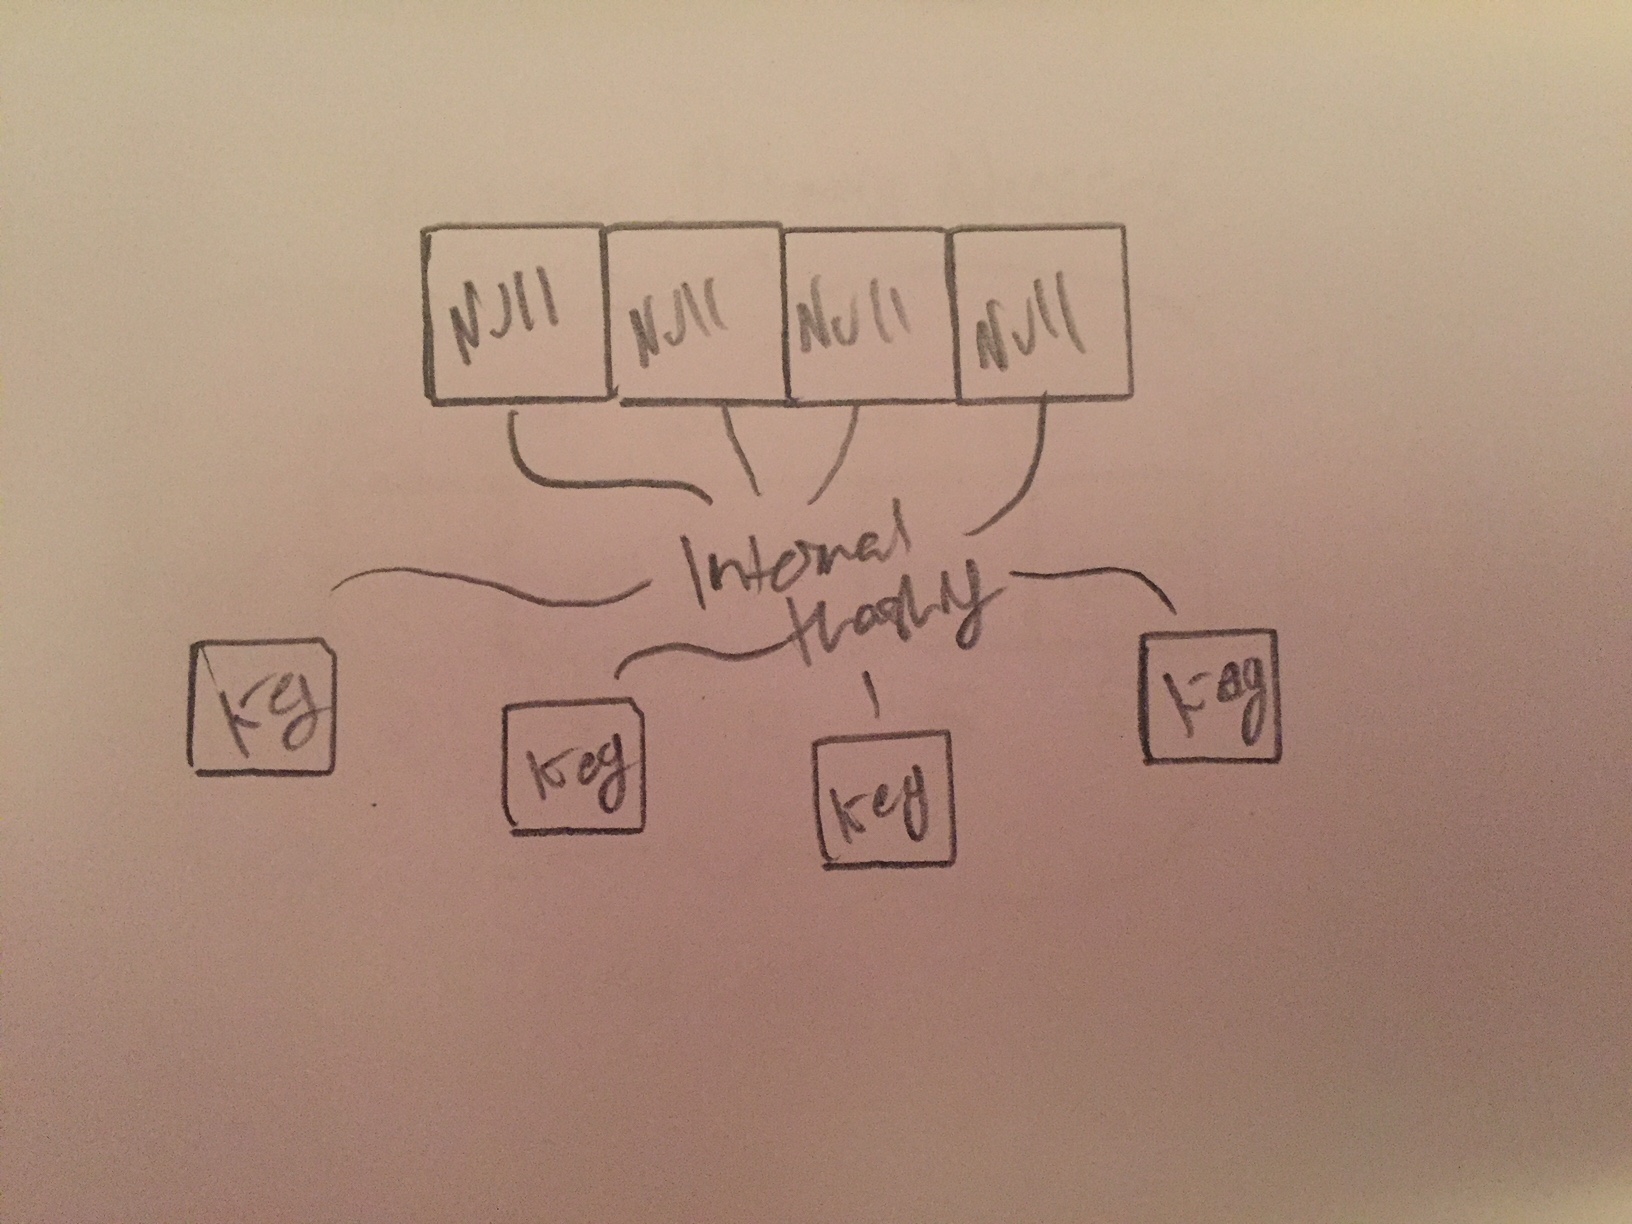 Null Null Null Null
Internal
Key Key Key Key